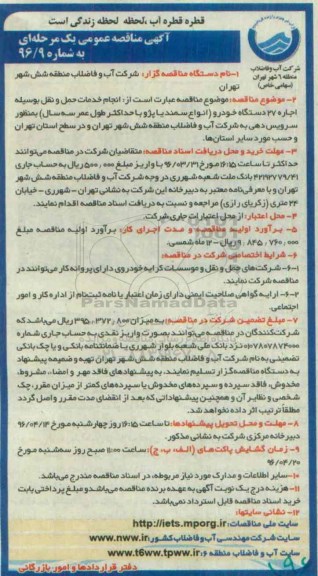 قطره قطره آب ،لحظه لحظه زندگی است
آگهی مناقصه عمومی یک مرحله‌ای
به شماره ۹۶/۹
شرکت آب و فاضلاب
منطقه ۶ شهر تهران
(سهامی خاص)
۱-نام دستگاه مناقصه گزار: شرکت آب و فاضلاب منطقه شش شهر
تهران
۲- موضوع مناقصه: موضوع مناقصه عبارت است از: انجام خدمات حمل و نقل بوسیله
اجاره ۲۷ دستگاه خودرو ( انواع سمند یا پژو با حداکثر طول عمر سه سال) بمنظور
سرویس دهی به شرکت آب و فاضلاب منطقه شش شهر تهران و در سطح استان تهران
و حسب مورد سایر استان‌ها.
۳- مهلت خرید و محل دریافت اسناد مناقصه: متقاضیان شرکت در مناقصه می‌توانند
حداکثر تا ساعت ۱۶:۱۵ مورخ ۹۶/۰۳/۳۱ با واریز مبلغ ۵۰۰,۰۰۰ ریال به حساب جاری
بانک ملت شعبه شهرری در وجه شرکت آب و فاضلاب منطقه شش شهر
تهران و با معرفی‌نامه معتبر به دبیرخانه این شرکت به نشانی تهران – شهرری – خیابان
۲۴ متری (زکریای رازی) مراجعه و نسبت به دریافت اسناد مناقصه اقدام نمایند.
۴- محل اعتبار: از محل اعتبارات جاری شرکت.
۵- برآورد اولیه مناقصه و مدت اجرای کار: برآورد اولیه مناقصه مبلغ
۹,۸۴۵,۷۶۰,۰۰۰ ریال – ۱۲ ماه شمسی.
۶- شرایط اختصاصی شرکت در مناقصه:
۶-۱- شرکت‌های حمل و نقل و موسسات کرایه خودروی دارای پروانه کار می‌توانند در
مناقصه شرکت نمایند.
۶-۲- ارایه گواهی صلاحیت ایمنی دارای زمان اعتبار یا نامه ثبت‌نام از اداره کار و امور
اجتماعی.
۷- مبلغ تضمین شرکت در مناقصه: به میزان ۳۹۵,۳۷۲,۸۰۰ ریال می‌باشد که
شرکت‌کنندگان در مناقصه می‌توانند بصورت واریز نقدی به حساب جاری شماره
نزد بانک ملی شعبه بلوار شهرری یا ضمانتنامه بانکی و یا چک بانکی
تضمینی به نام شرکت آب و فاضلاب منطقه شش شهر تهران تهیه و ضمیمه پیشنهاد
به دستگاه مناقصه گزار تسلیم نمایند. به پیشنهادهای فاقد مهر و امضاء، مشروط،
مخدوش، فاقد سپرده و سپرده‌های مخدوش یا سپرده‌های کمتر از میزان مقرر، چک
شخصی و نظایر آن و همچنین پیشنهاداتی که بعد از انقضای مدت مقرر واصل گردد
مطلقاً ترتیب اثر داده نخواهد شد.
۸- مهلت و محل تحویل پیشنهادها: تا ساعت ۱۶:۱۵ روز چهارشنبه مورخ ۹۶/۰۴/۱۴
دبیرخانه مرکزی شرکت به نشانی مذکور.
۹- زمان گشایش پاکت‌های (الف، ب، ج): ساعت ۱۱:۰۰ صبح روز سه‌شنبه مورخ
۹۶/۰۴/۲۰
۱۰-سایر اطلاعات و مدارک مورد نیاز مربوطه، در اسناد مناقصه مندرج می‌باشد.
۱۱- هزینه درج یک نوبت آگهی به عهده برنده مناقصه می‌باشد و مبلغ پرداختی بابت
خرید اسناد مناقصه قابل استرداد نمی‌باشد.
۱۲- نشانی سایتها:
سایت ملی مناقصات: http://iets.mporg.ir
سایت شرکت مهندسی آب و فاضلاب کشور: www.nww.ir
سایت آب و فاضلاب منطقه ۶: www.t6ww.tpww.ir
دفتر قراردادها و امور بازرگانی
ParsNamadData